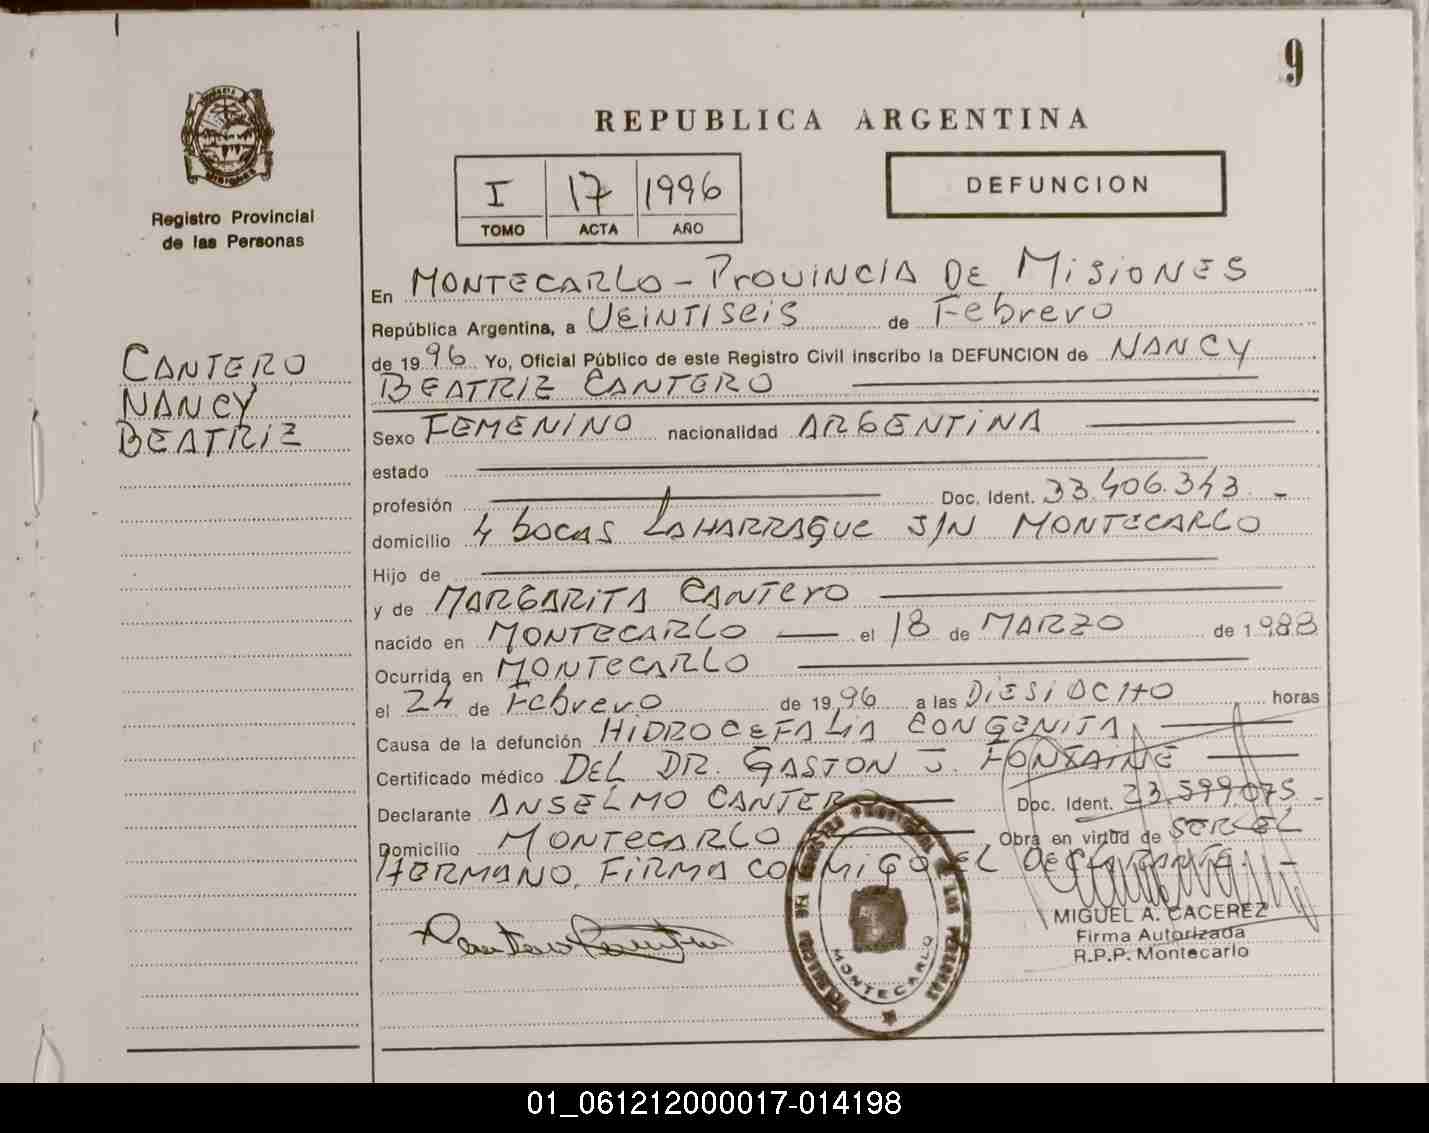 9
REPUBLICA ARGENTINA
I 17 1996
TOMO ACTA AÑO
DEFUNCION
MISIONES
Registro Provincial
de las Personas
CANTERO
NANCY
BEATRIZ
En MONTECARLO - PROVINCIA DE MISIONES
República Argentina, a VEINTISEIS de Febrero
de 1996 Yo, Oficial Público de este Registro Civil inscribo la DEFUNCION de NANCY
BEATRIZ CANTERO
Sexo FEMENINO nacionalidad ARGENTINA
estado
profesión Doc. Ident. 33.406.343.-
domicilio 4 BOCAS LAHARRAGUE S/N MONTECARLO
Hijo de
y de MARGARITA CANTERO
nacido en MONTECARLO el 18 de MARZO de 1988
Ocurrida en MONTECARLO
el 24 de Febrero de 1996 a las DIESIOCHO horas
Causa de la defunción HIDROCEFALIA CONGENITA
Certificado médico DEL DR. GASTON J. FONTAINE
Declarante ANSELMO CANTERO Doc. Ident. 23.599.075.-
Domicilio MONTECARLO Obra en virtud de SER EL
HERMANO, FIRMA CONMIGO EL DECLARANTE.-
MIGUEL A. CACEREZ
Firma Autorizada
R.P.P. Montecarlo
REGISTRO PROVINCIAL DE LAS PERSONAS
MONTECARLO
01_061212000017-014198